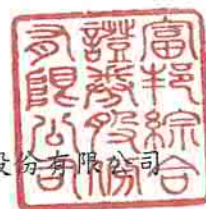 富邦綜合
證券股份
有限公司
股份有限公司